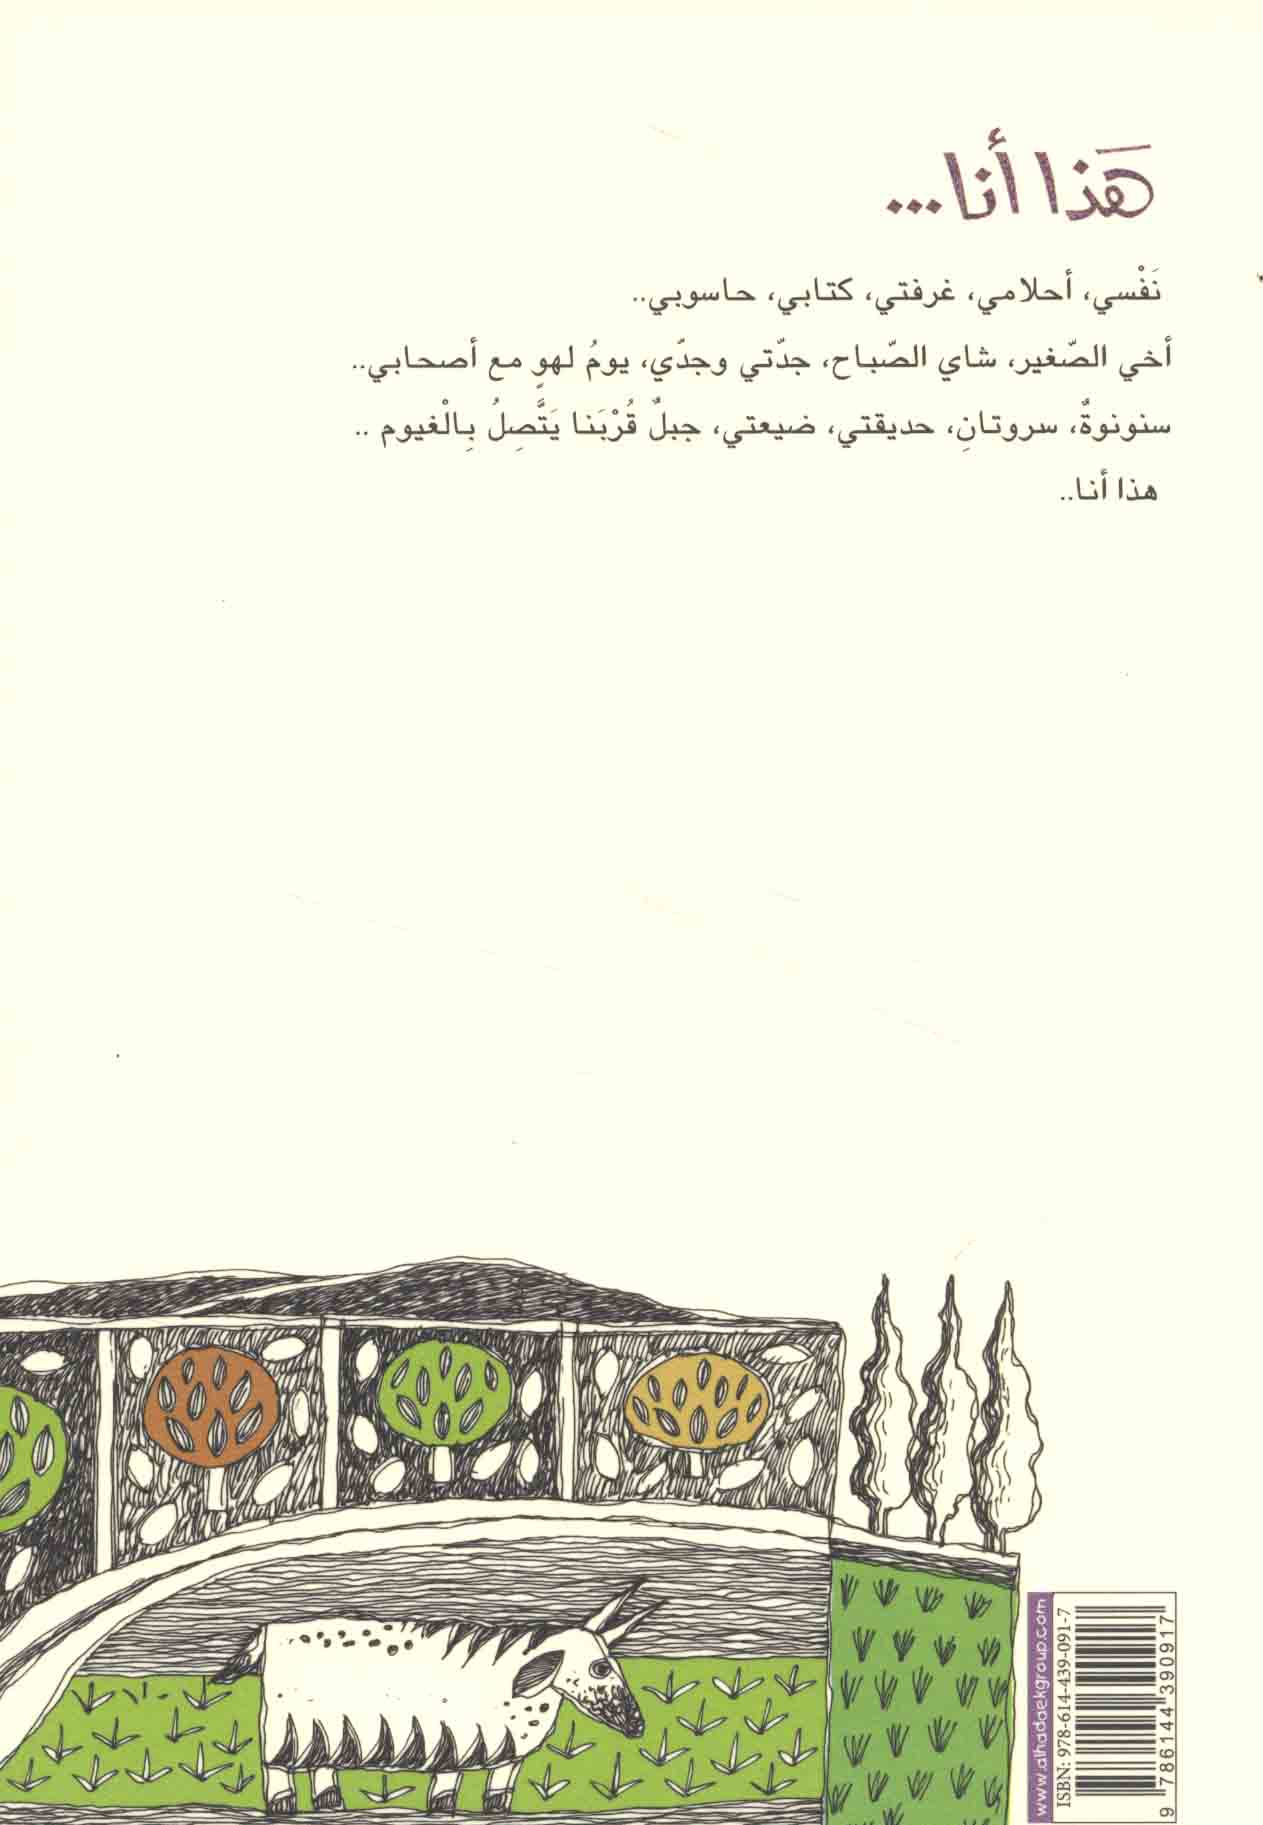 هَذا أنا...
نَفْسي، أحلامي، غرفتي، كتابي، حاسوبي..
أخي الصّغير، شاي الصّباح، جدّتي وجدّي، يومُ لهوٍ مع أصحابي..
سنونوةٌ، سروتانِ، حديقتي، ضيعتي، جبلٌ قُرْبَنا يَتَّصِلُ بِالْغيوم ..
هذا أنا..
www.alhadaekgroup.com
ISBN: 978-614-439-091-7
9 786144 390917